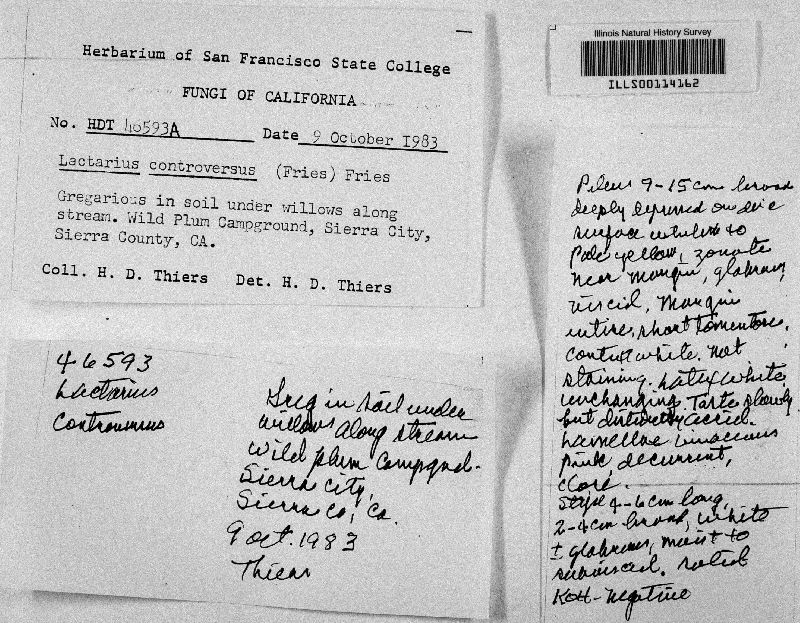 Herbarium of San Francisco State College
FUNGI OF CALIFORNIA
No. HDT 46593A Date 9 October 1983
Lactarius controversus (Fries) Fries
Gregarious in soil under willows along
stream. Wild Plum Campground, Sierra City,
Sierra County, CA.
Coll. H. D. Thiers Det. H. D. Thiers
46593
Lactarius
controversus
Greg in soil under
willows along stream
Wild plum Campgnd.
Sierra City,
Sierra Co, Ca.
9 Oct. 1983
Thiers
Illinois Natural History Survey
ILLS00114162
Pileus 9-15 cm broad
deeply depressed on disc
surface whitish to
Pale yellow, zonate
near margin, glabrous,
viscid, Margin
entire, short tomentose,
context white. not
staining. Latex white,
unchanging. Taste slowly
but distinctly acrid.
Lamellae vinaceous
pink, decurrent,
close.
Stipe 4-6 cm long,
2-4 cm broad, white
± glabrous, moist to
subviscid.
KOH-negative